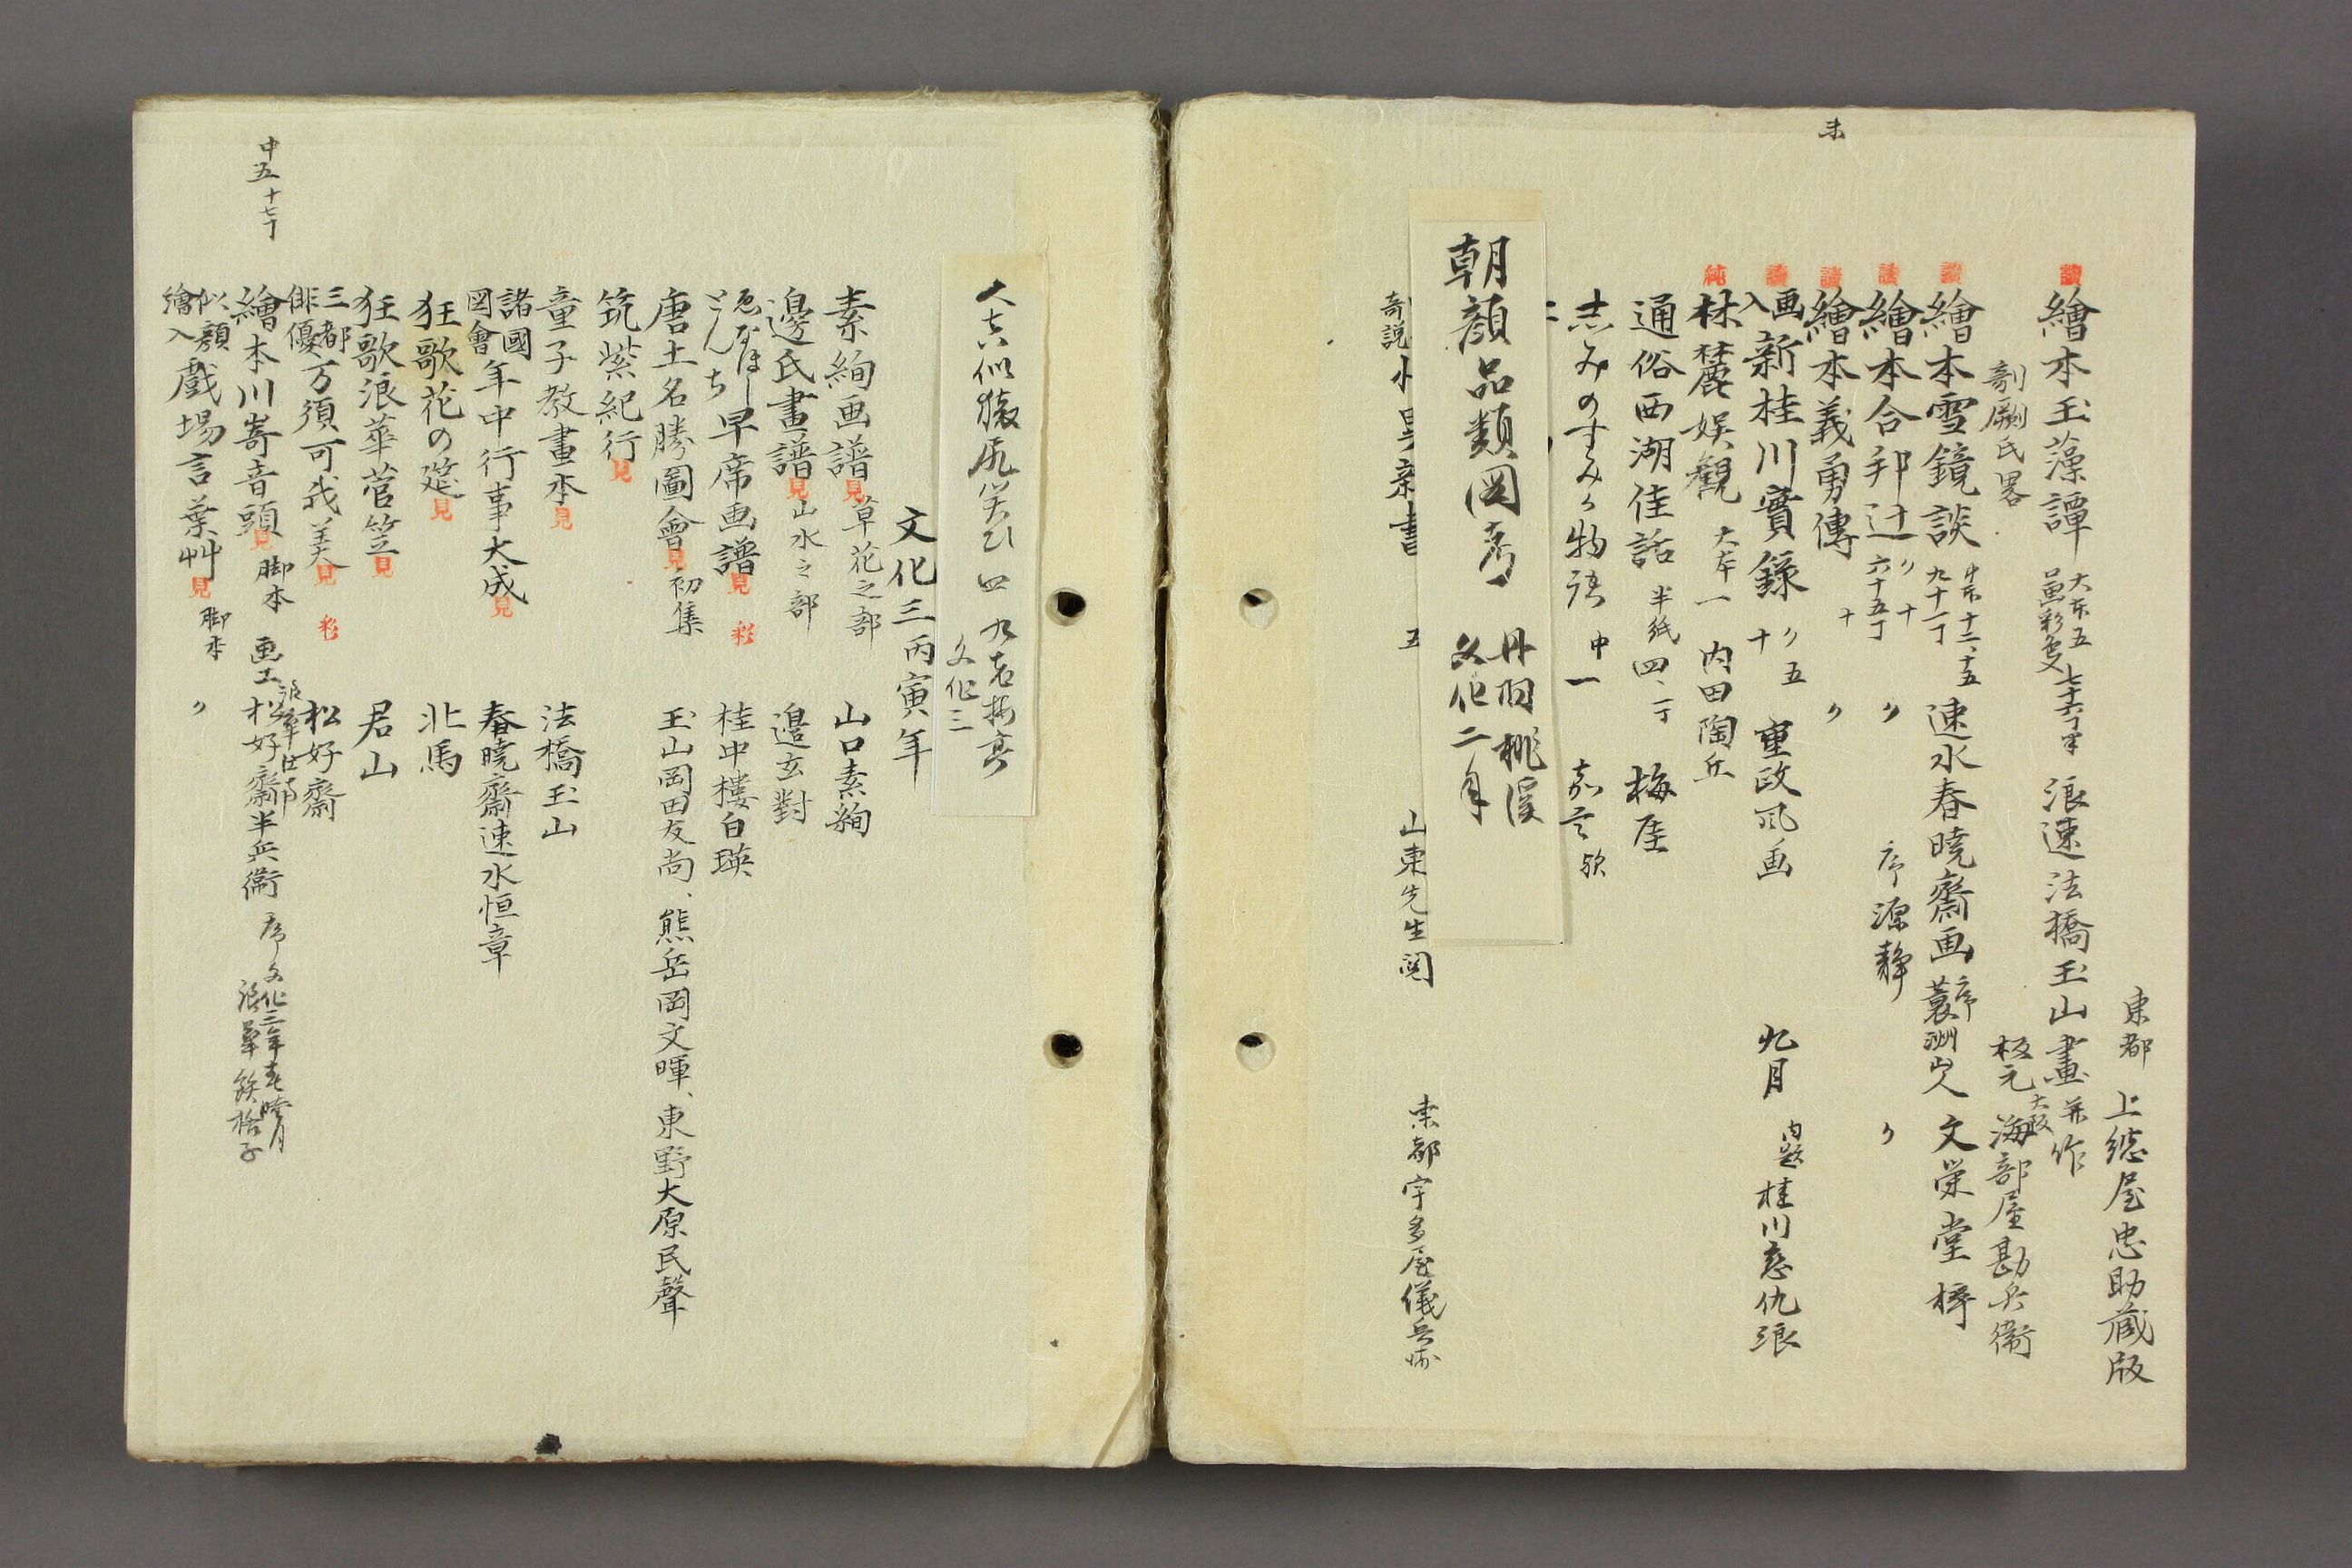 未
東都 上總屋忠助蔵版
繪本玉藻譚 大本五 画彩色 浪速 法橋玉山畫 并作
剞劂氏畧 板元 大阪 海部屋勘兵衛
繪本雪鏡談 中本十二、十五 九十一丁 速水春暁齋画 序 蓑洲山人 文栄堂梓
繪本合邦辻 〃 十 六十五丁 〃 序 源靜 〃
繪本義勇傳 十 〃
画入新桂川實録 〃 五 十 重政風画 九月 内題 桂川
林麓娯観 大本一 内田陶丘
通俗西湖佳話 半紙四、 梅厓
志みのすみか物語 中一 歟
朝顔品類図考 丹羽桃溪
文化二年
奇説 五 山東先生閲 東都 宇多屋儀兵衛
四 九老
文化三
文化三丙寅年
素絢画譜 見 草花之部 山口素絢
邊氏畫譜 見 山水之部 邉玄對
早席画譜 見 彩 桂中樓白瑛
唐土名勝圖會 見 初集 玉山岡田友尚、熊岳岡文暉、東野大原民聲
筑紫紀行 見
童子教畫本 見 法橋玉山
諸國図會年中行事大成 見 春暁齋速水恒章
狂歌花の筵 見 北馬
狂歌浪華菅笠 見 君山
三都俳優万須可我美 見 彩 松好齋
中五 十七丁
繪本川嵜音頭 見 脚本 画工 松好齋半兵衛 序 文化三年
似顔繪入戲場言葉艸 見 脚本 〃